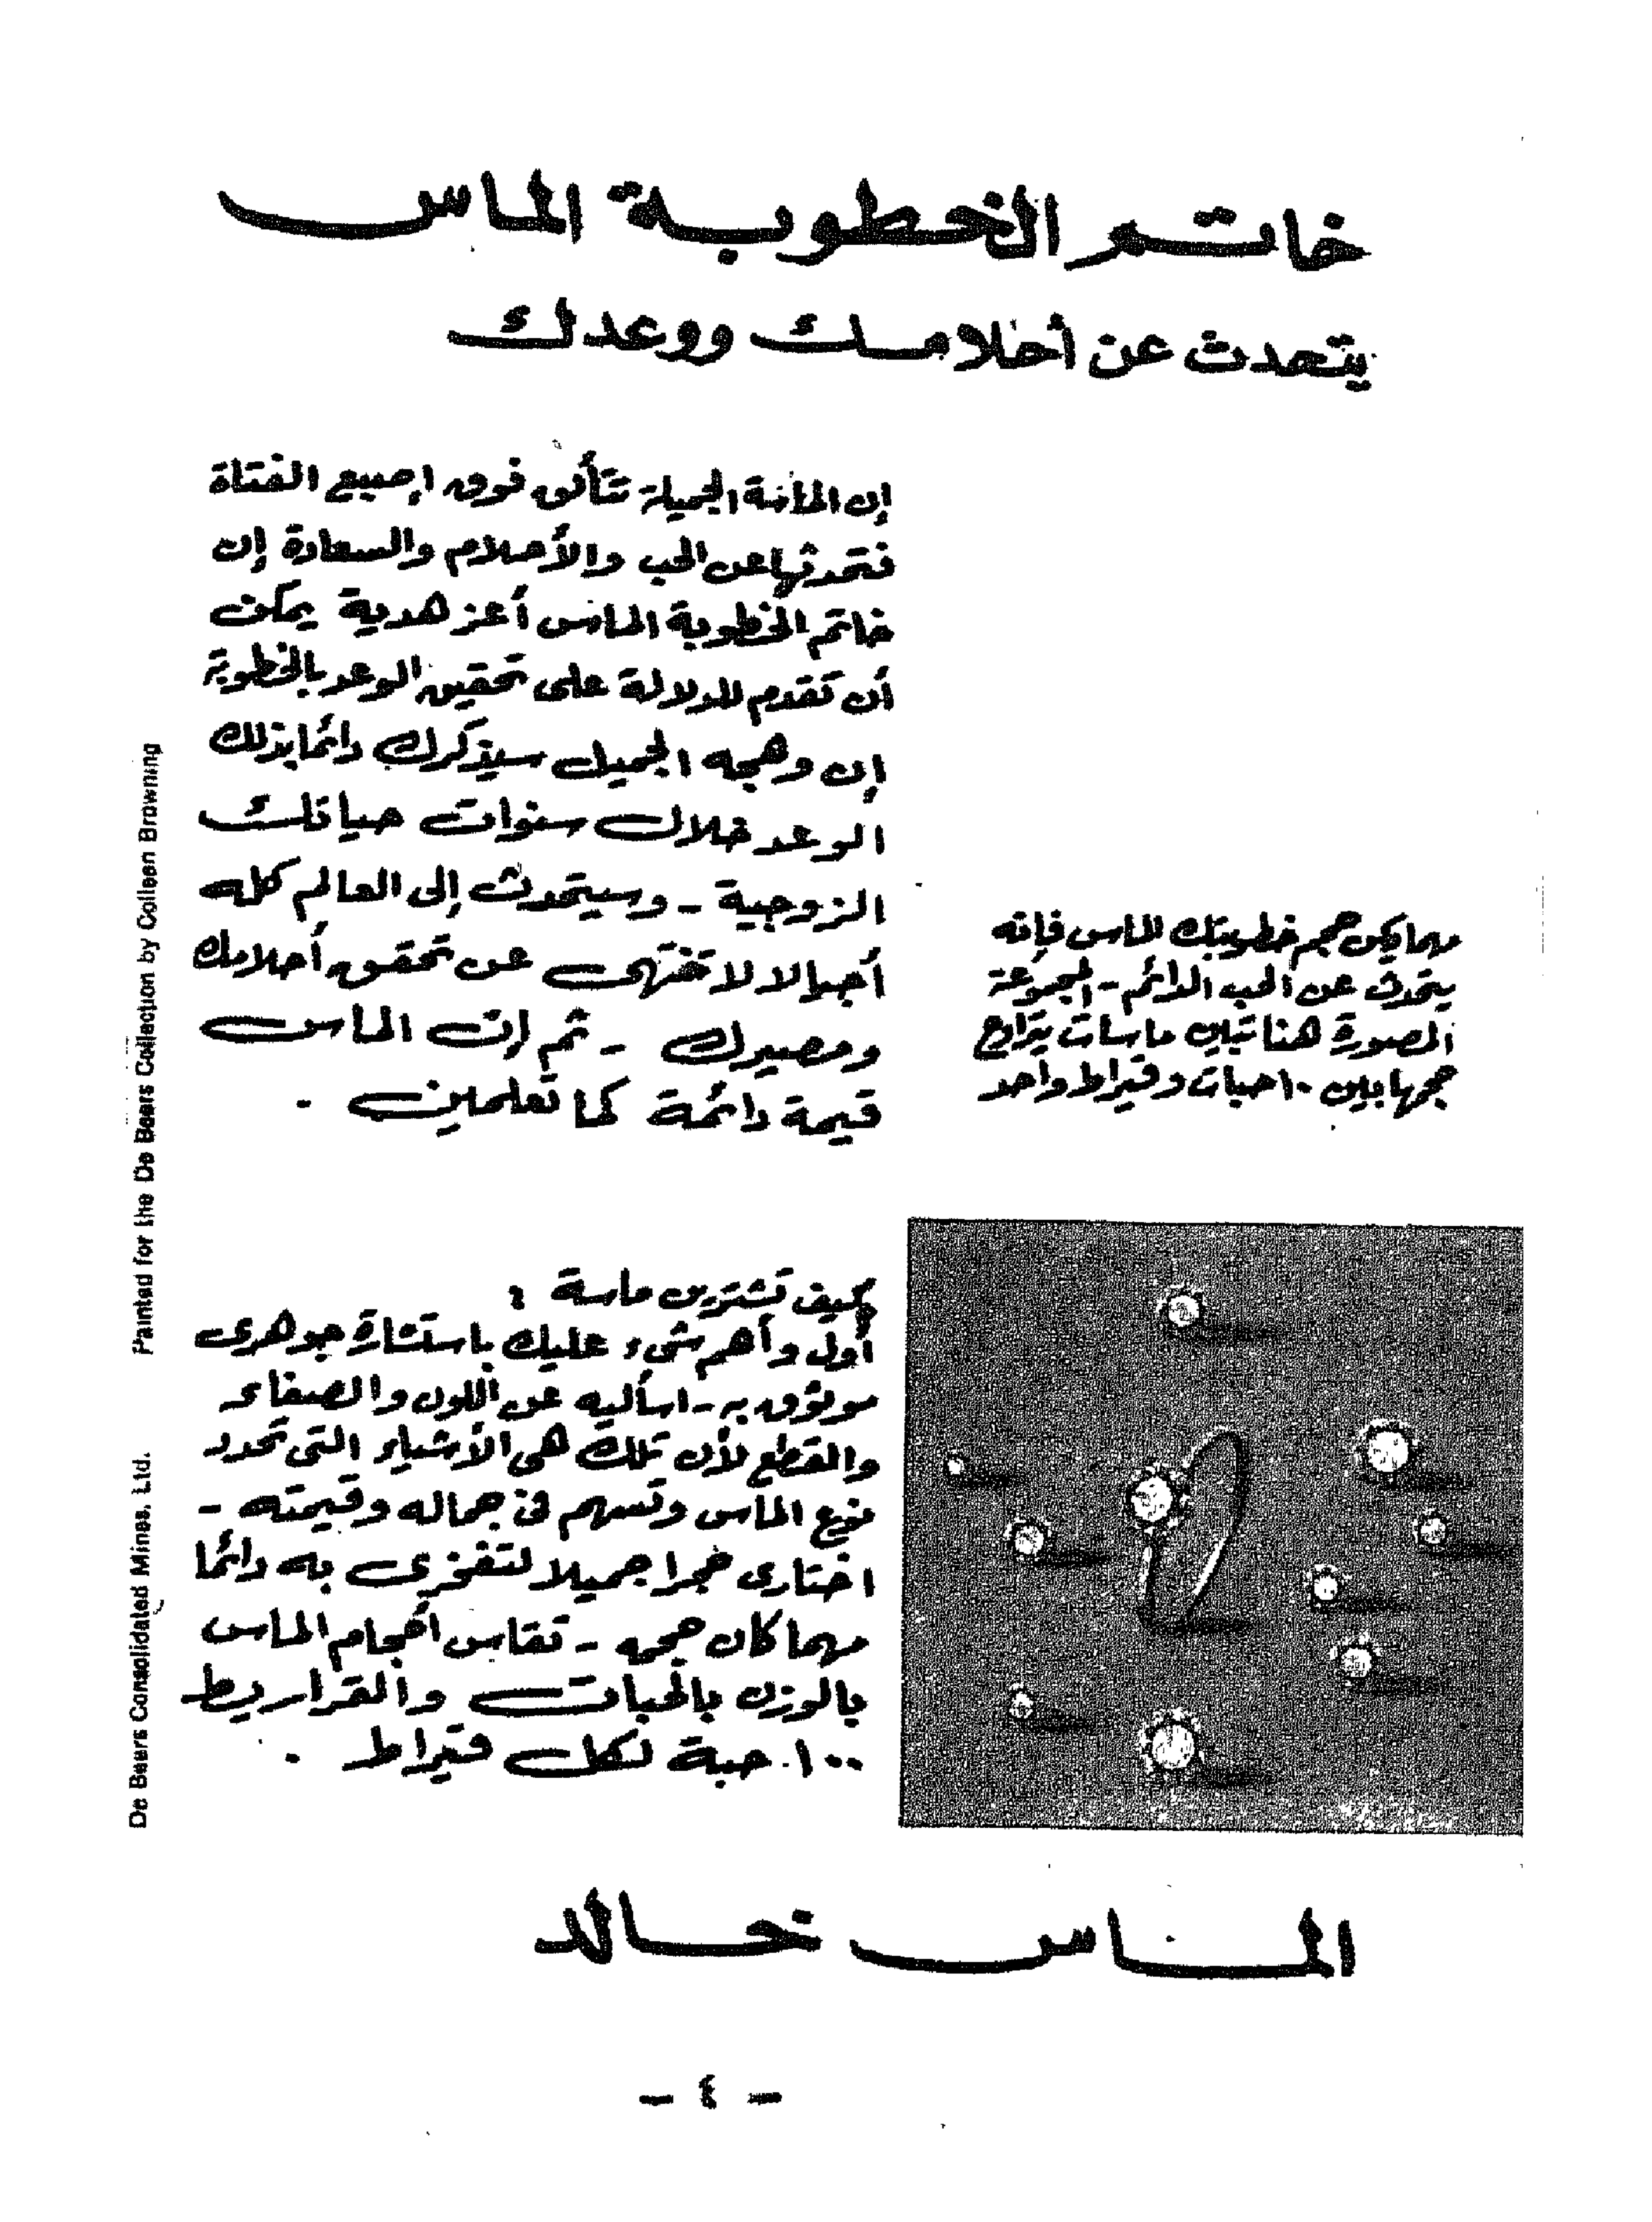 خاتم الخطوبة الماس
يتحدث عن أحلامك ووعدك
إن الماسة الجميلة تتألق فوق إصبع الفتاة
فتحدثها عن الحب والأحلام والسعادة إن
خاتم الخطوبة الماس أعز هدية يمكن
أن تقدم للدلالة على تحقيق الوعد بالخطوبة
إن وهجه الجميل سيذكرك دائما بذلك
الوعد خلال سنوات حياتك
الزوجية - وسيتحدث إلى العالم كله
أجيالا لا تنتهى عن تحقق أحلامك
ومصيرك - ثم إن الماس
قيمة دائمة كما تعلمين .
مهما يكن حجم خطوبتك الماس فإنه
يتحدث عن الحب الدائم - المجموعة
المصورة هنا تبين ماسات يتراوح
حجمها بين ١٠ حبات وقيراط واحد
كيف تشترين ماسة :
أول وأهم شىء عليك باستشارة جوهرى
موثوق به - اسأليه عن اللون والصفاء
والقطع لأن تلك هى الأشياء التى تحدد
نوع الماس وتسهم فى جماله وقيمته -
اختارى حجرا جميلا لتفخرى به دائما
مهما كان حجمه - تقاس أحجام الماس
بالوزن بالحبات والقراريط
١٠٠ حبة لكل قيراط .
الماس خالد
- ٤ -
De Beers Consolidated Mines, Ltd.
Painted for the De Beers Collection by Colleen Browning